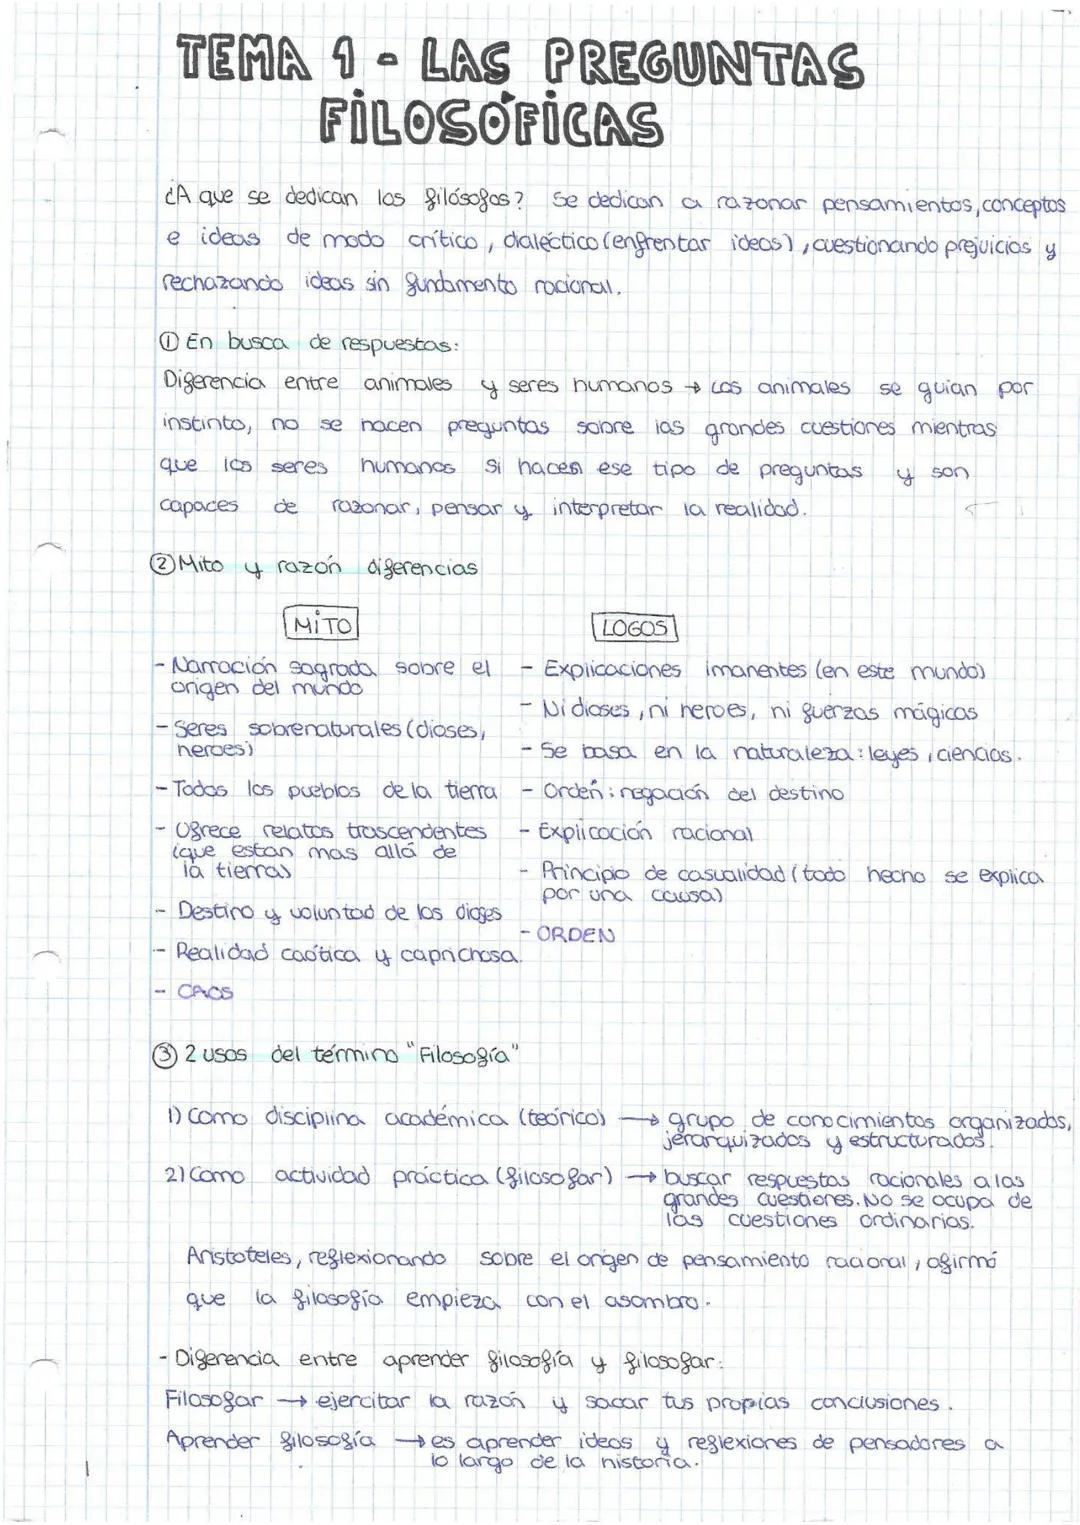 TEMA 1 - LAS PREGUNTAS
FILOSÓFICAS
¿A que se dedican los filósofos? Se dedican a razonar pensamientos, conceptos
e ideas de modo crítico, dialéctico (enfrentar ideas), cuestionando prejuicios y
rechazando ideas sin fundamento racional.
① En busca de respuestas:
Diferencia entre animales y seres humanos → Los animales se guian por
instinto, no se hacen preguntas sobre las grandes cuestiones mientras
que los seres humanos si hacen ese tipo de preguntas y son
capaces de razonar, pensar y interpretar la realidad.
② Mito y razón diferencias
MITO
- Narración sagrada sobre el
origen del mundo
- Seres sobrenaturales (dioses,
heroes)
- Todos los pueblos de la tierra
- Ofrece relatos trascendentes
(que estan mas allá de
la tierra)
- Destino y voluntad de los dioses
- Realidad caótica y caprichosa.
- CAOS
LOGOS
- Explicaciones imanentes (en este mundo)
- Ni dioses, ni heroes, ni fuerzas mágicas
- Se basa en la naturaleza: leyes, ciencias.
- Orden: negación del destino
- Explicación racional
- Principio de casualidad (todo hecho se explica
por una causa)
- ORDEN
③ 2 usos del término "Filosofía"
1) Como disciplina académica (teórico) → grupo de conocimientos organizados,
jerarquizados y estructurados.
2) Como actividad práctica (filosofar) → buscar respuestas racionales a las
grandes cuestiones. No se ocupa de
las cuestiones ordinarias.
Aristoteles, reflexionando sobre el origen de pensamiento racional, afirmó
que la filosofía empieza con el asombro.
- Diferencia entre aprender filosofía y filosofar:
Filosofar → ejercitar la razón y sacar tus propias conclusiones.
Aprender filosofía → es aprender ideas y reflexiones de pensadores a
lo largo de la historia.